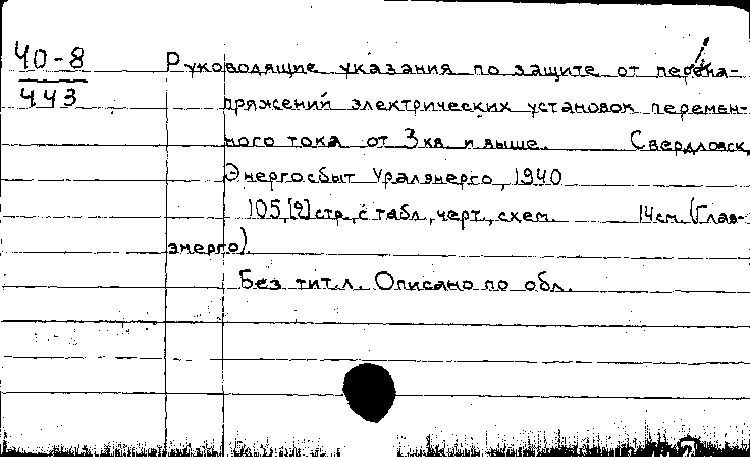 40-8
443
Руководящие указания по защите от перена-
пряжений электрических установок перемен-
ного тока от 3кв и выше. Свердловск,
Энергосбыт Уралэнерго, 1940
105,[2] стр., с табл., черт., схем. 14см. (Глав-
энерго).
Без тит.л. Описано по обл.